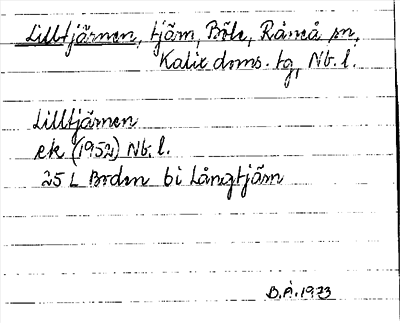 Lilltjärnen, tjärn, Böle, Råneå sn,
Kalix doms. tg, Nb. l.
Lilltjärnen
ek (1952) Nb. l.
25 L Boden bi Långtjärn
B.Å. 1973